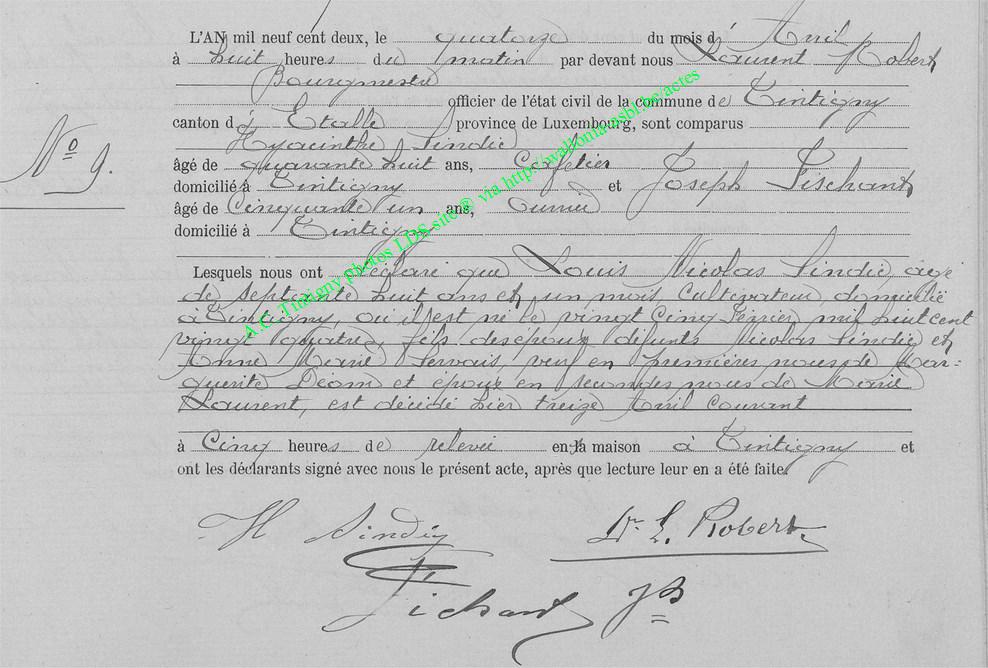 L'AN mil neuf cent deux, le quatorze du mois d'Avril
à huit heures du matin par devant nous Laurent Robert
Bourgmestre
officier de l'état civil de la commune de Tintigny
canton d'Etalle province de Luxembourg, sont comparus
Hyacinthe Sindic
N° 9.
âgé de quarante huit ans, Cafetier
domicilié à Tintigny et Joseph
âgé de Cinquante un ans,
domicilié à Tintigny
Lesquels nous ont déclaré que Louis Nicolas Sindic, âgé
de septante huit ans et un mois Cultivateur domicilié
à Tintigny, où il est né le vingt Cinq Février mil huit cent
vingt quatre, fils des époux défunts Nicolas Sindic et
Anne Marie Servais, veuf en premières noces de Mar-
guerite Déom et époux en secondes noces de Marie
Laurent, est décédé hier treize Avril Courant
à Cinq heures de relevée en la maison à Tintigny et
ont les déclarants signé avec nous le présent acte, après que lecture leur en a été faite.
H Sindic Dr L. Robert
A.C. Tintigny photos LDS site © via http://wallonia.asbl.be/actes